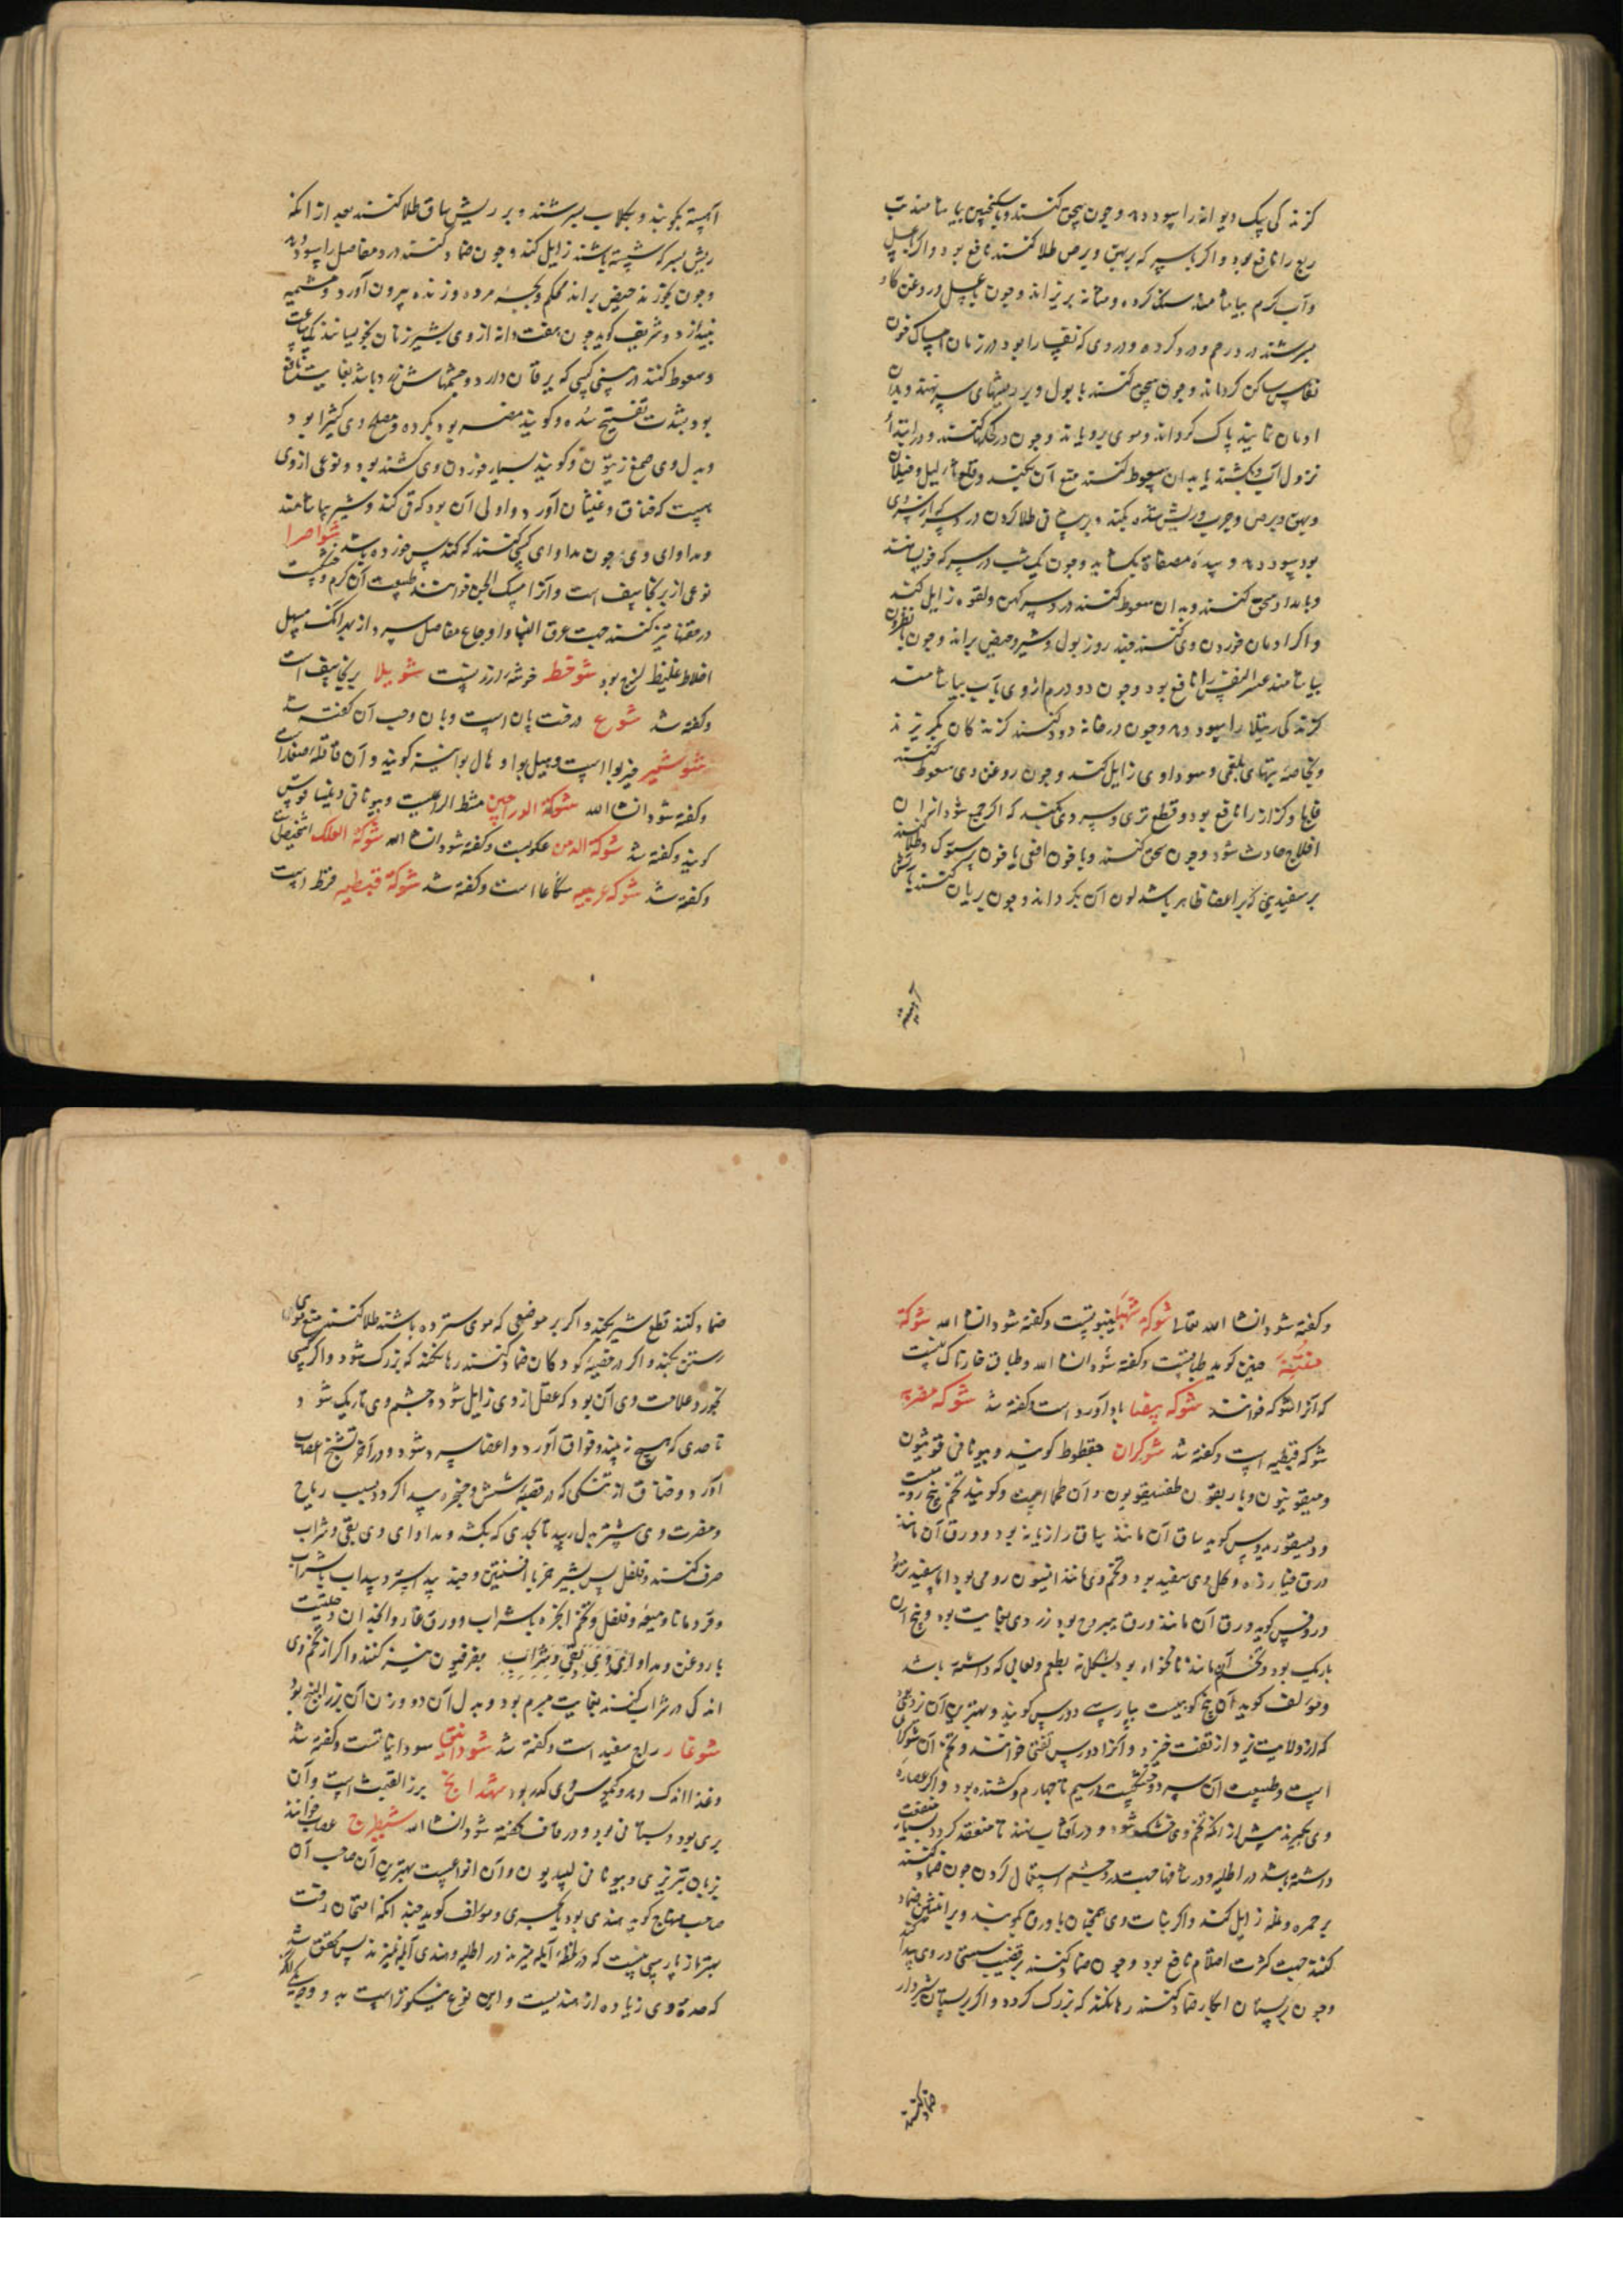 کزندگی سگ دیوانه را سود دهد و چون سحق کنند و با سکنجبین بیاشامند تب
ربع را نافع بود و اگر با سرکه بر بهق و برص طلا کنند نافع بود و اگر با عسل
و آب گرم بیاشامند سنگ کرده و مثانه بریزاند و چون با عسل و روغن گاو
بسرشند درد رحم و درد کرده و دردی که نفسا را بود در زمان امساک خون
نفاس ساکن گرداند و چون سحق کنند با بول و بر ریشهای سر نهند و بدان
ادمان نمایند پاک گرداند و موی برویاند و چون در کحل کنند و در ابتداء
نزول آب بکشند یا بدان سعوط کنند منع آن بکند و قلع ثآلیل و خیلان
و بهق و برص و جرب و ریش شده بکند
بود سود دهد و سده مصفاة بگشاید و چون یک شب در سرکه خیسانند
و بامداد سحق کنند و بدان سعوط کنند درد سر کهن و لقوه زایل کند
و اگر ادمان خوردن وی کنند چند روز بول و شیر و حیض براند و چون با نطرون
بیاشامند عسر النفس را نافع بود و چون دو درم از وی با آب بیاشامند
کزندگی رتیلا را سود دهد و چون در خانه دود کنند کزندکان بگریزند
و بخاصه تبهای بلغمی و سوداوی زایل کند و چون روغن وی سعوط کنند
فالج و کزاز را نافع بود و قطع تری و سردی بکند که اگر جمع شود از آن
افلاج حادث شود و چون سحق کنند و با خون افعی یا خون پرستوک و طلا کنند
بر سفیدیی که بر اعضا ظاهر باشد لون آن بگرداند و چون بریان کنند با آتش
آهسته
آهسته بکوبند و بگلاب بسرشند و بر ریش ساق طلا کنند بعد از آنکه
ریش بسرکه شسته باشند زایل کند و چون ضماد کنند درد مفاصل را سود دهد
و چون بخورند حیض براند محکم و بچه مرده و زنده بیرون آورد و مشیمه
بیندازد و شریف گوید چون هفت دانه از وی بشیر زنان بخیسانند یک ساعت
و سعوط کنند در بینی کسی که یرقان دارد و چشمهاش زرد باشد بغایت نافع
بود بشدت تفتیح سده و گویند مضر بود بکرده و مصلح وی کثیرا بود
و بدل وی صمغ زیتون و گویند بسیار خوردن وی کشنده بود و نوعی از وی
هست که خناق و غثیان آورد و اولی آن بود که قی کند و شیر بیاشامند
و مداوای وی چون مداوای کسی کنند که کندس خورده باشد شواصرا
نوعی از برنجاسف است و آنرا مسک الجن خوانند طبیعت آن گرم و خشکست
در حقنها نیز کنند جهت عرق النسا و اوجاع مفاصل سرد از بهر آنک مسهل
اخلاط غلیظ لزج بود شوخط خوشه ارزنیست شویلا برنجاسف است
و گفته شد شوع درخت بان است و بان و حب آن گفته شد
شوشمیر خیربوا است و هیل بوا و هال بوا نیز گویند و آن قاقله صغار است
و گفته شود ان شا الله شوکة الدراجین مشط الراعیست و بیونانی دینساقوس
گویند و گفته شد شوکة الدمن عکوبست و گفته شود ان شا الله شوکة العلک اشخیص است
و گفته شد شوکه عربیه شکاعا است و گفته شد شوکة قبطیه قرظ است
و گفته شود ان شا الله تعالی شوکة شهبا ینبوتست و گفته شود ان شا الله شوکة
منتنه حنین گوید طباقست و گفته شود ان شا الله و طباق خارناک نیست
که آنرا شوکه خوانند شوکه بیضا باداورد است و گفته شد شوکه مصریه
شوکه قبطیه است و گفته شد شوکران حقطوط گویند و بیونانی قونیون
گویند تخم بیخ رومیست
و دیسقوریدوس گوید ساق آن مانند ساق رازیانه بود و ورق آن مانند
ورق خیار زه و گل وی سفید بود و تخم وی مانند انیسون رومی بود اما سفیدتر بود
و روفس گوید ورق آن مانند ورق یبروح بود زردی بغایت بود و بیخ آن
باریک بود و تخم آن مانند نانخواه بود بشکل نه بطعم و لعابی که داشته باشد
و مؤلف گوید آن بیخ کوهیست بپارسی دورس گویند و بهترین آن زرد بود
که از ولایت یزد از تفت خیزد و آنرا دورس تفتی خوانند و تخم آن شوکران
است و طبیعت آن سرد و خشکست در سیم تا چهارم و کشنده بود و اگر عصاره
وی بگیرند پیش از آنکه تخم وی خشک شود و در آفتاب نهند تا منعقد گردد بسیار منفعت
داشته باشد در اطلیه و در شافها جهت درد چشم استعمال کردن چون ضماد کنند
بر حمره و نمله زایل کند و اگر نبات وی همچنان با ورق بکوبند و بر انثیین ضماد
کنند جهت کثرت احتلام نافع بود و چون ضماد کنند بر قضیب سستی در وی پیدا کند
و چون بر پستان ابکار ضماد کنند رها نکند که بزرگ گردد و اگر بر پستان شیردار
ضماد کنند
ضماد کنند قطع شیر بکند و اگر بر موضعی که موی سترده باشند طلا کنند منع موی
رستن بکند و اگر در خصیه کودکان ضماد کنند رها نکند که بزرگ شود و اگر کسی
بخورد علامت وی آن بود که عقل از وی زایل شود و چشم وی تاریک شود
تا حدی که هیچ نبیند و فواق آورد و اعضا سرد شود و در آخر تشنج اعصاب
آورد و خناق از تنگی که در قصبه شش و حنجره پیدا گردد بسبب ریاح
و مضرت وی بیشتر بدل رسد تا بحدی که بکشد و مداوای وی بقی و شراب
صرف کنند و فلفل پس بشیر خر با افسنتین و جند بیدستر و سداب با شراب
و قردمانا و میعه و فلفل و تخم انجره با شراب و ورق غار و انجدان و حلتیت
با روغن و مداوای وی بقی و شراب بفرفیون نیز کنند و اگر از تخم وی
اندکی در شراب کنند بغایت مبرم بود و بدل آن دو وزن آن بزر البنج بود
شوغار راع سفید است و گفته شد شودانتی سودانیاتست و گفته شد
و غذا اندک دهد و کیموس وی کدر بود شهدانج بزر القنبست و آن
بری بود و بستانی بود و در قاف گفته شود ان شا الله شیطرج عصاب خوانند
بزبان تبریزی و بیونانی لیبیدیون و آن انواعست بهترین آن صاحب آن
صاحب منهاج گوید هندی بود یا بحیری و مؤلف گوید چند آنکه امتحان رفت
بهتر از پارسی نیست که در لحظه آبله خیزند در اطلیه و هندی آبله نخیزند پس محقق شد
که حدة وی زیاده از هندیست و این نوع نیکوتر است